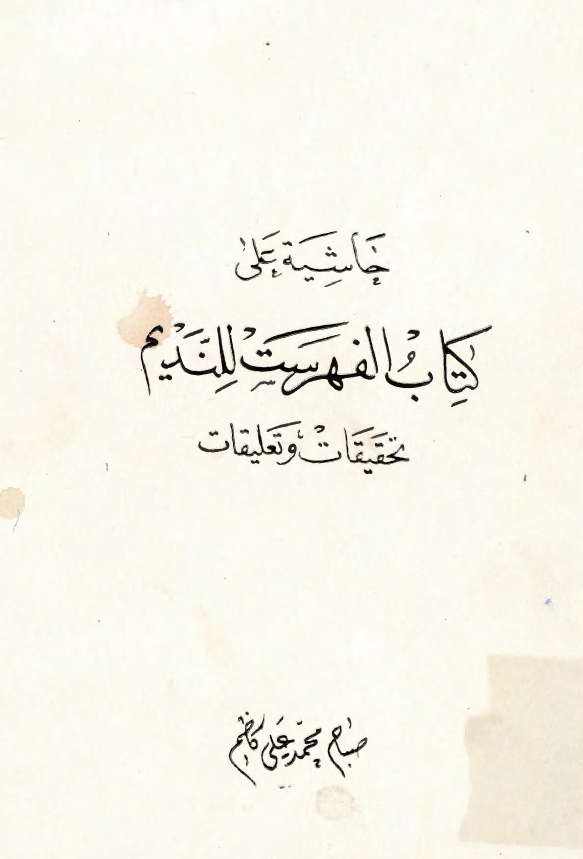 حَاشِيَة عَلىٰ
كِتَابُ الفهرسَتِ للِنَّديْم
تحَقيَقَاتْ وَتعَليقات
صباح محمّد عَلي كاظم